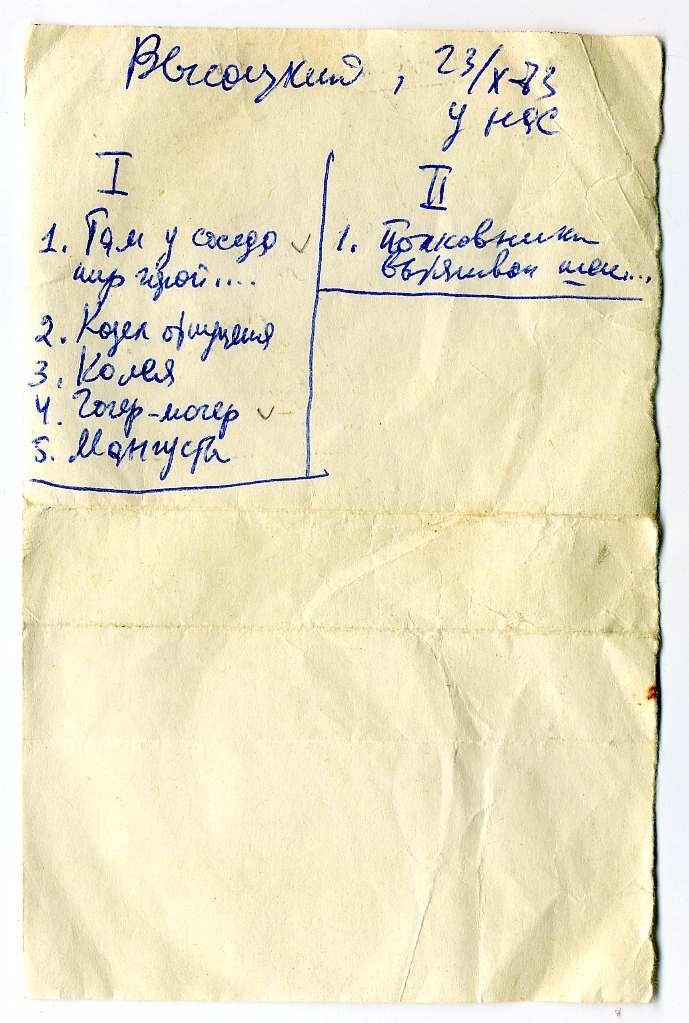 Высоцкий, 23/X-73
у нас
I
1. Там у соседа ✓
пир горой....
2. Козел отпущения
3. Колея
4. Гогер-могер ✓
5. Мангусты
II
1. Полковники